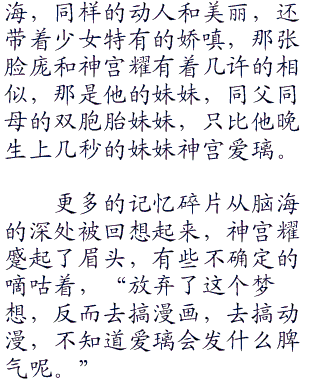 海，同样的动人和美丽，还
带着少女特有的娇嗔，那张
脸庞和神宫耀有着几许的相
似，那是他的妹妹，同父同
母的双胞胎妹妹，只比他晚
生上几秒的妹妹神宫爱璃。
更多的记忆碎片从脑海
的深处被回想起来，神宫耀
蹙起了眉头，有些不确定的
嘀咕着，“放弃了这个梦
想，反而去搞漫画，去搞动
漫，不知道爱璃会发什么脾
气呢。”